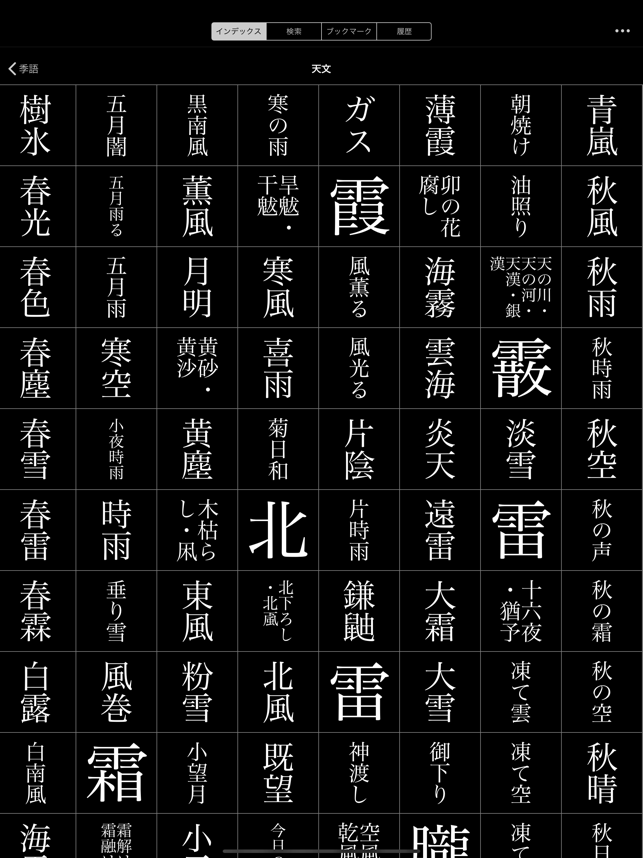 インデックス
検索
ブックマーク
履歴
季語
天文
青嵐
秋風
秋雨
秋時雨
秋空
秋の声
秋の霜
秋の空
秋晴
秋日
朝焼け
油照り
天の川・
天の河・
天漢・銀
漢
霰
淡雪
雷
十六夜
・猶予
凍て雲
凍て空
凍て
薄霞
卯の花
腐し
海霧
雲海
炎天
遠雷
大霜
大雪
御下り
朧
ガス
霞
風薫る
風光る
片陰
片時雨
鎌鼬
雷
神渡し
空風
乾風
寒の雨
旱魃・
干魃
寒風
喜雨
菊日和
北
北下ろし
・北颪
北風
既望
今日
黒南風
薫風
月明
黄砂・
黄沙
黄塵
木枯ら
し・凩
東風
粉雪
小望月
小
五月闇
五月雨る
五月雨
寒空
小夜時雨
時雨
垂り雪
風巻
霜
霜解け
霜融け
樹氷
春光
春色
春塵
春雪
春雷
春霖
白露
白南風
海